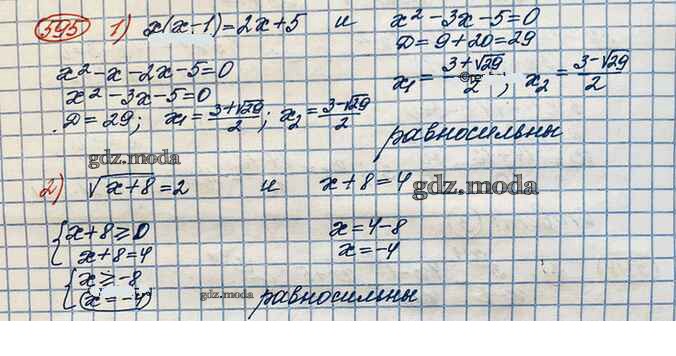 595 1) x(x-1)=2x+5 и x²-3x-5=0
D=9+20=29
x²-x-2x-5=0
x₁=(3+√29)/2; x₂=(3-√29)/2
x²-3x-5=0
D=29; x₁=(3+√29)/2; x₂=(3-√29)/2
равносильны
gdz.moda
2) √(x+8)=2 и x+8=4
gdz.moda
{x+8≥0 x=4-8
x+8=4 x=-4
{x≥-8
x=-4 gdz.moda равносильны